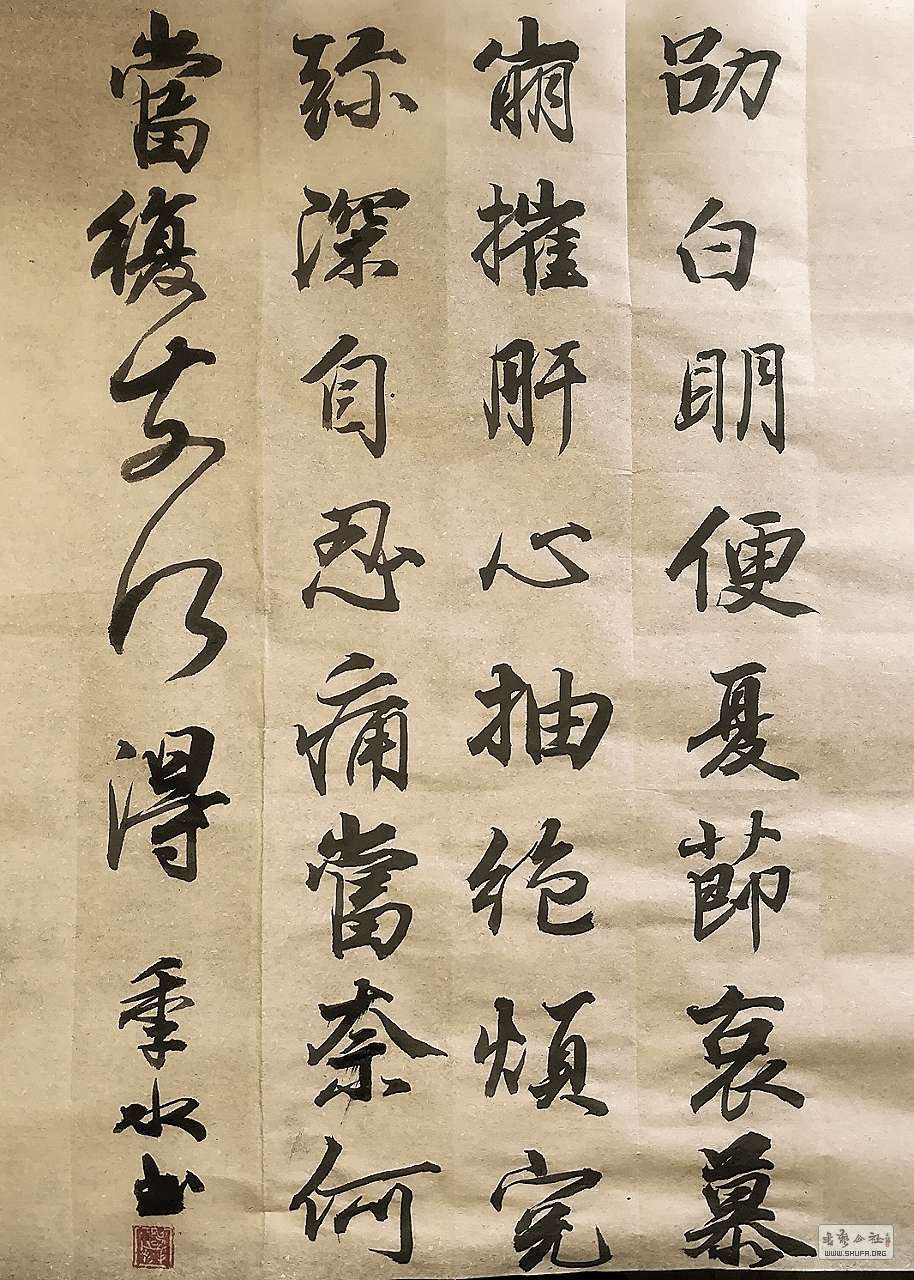 劭白明便夏節哀慕
崩摧肝心抽絶煩冤
弥深自忍痛當奈何
當復奈何得
季水书
书艺公社
WWW.SHUFA.ORG